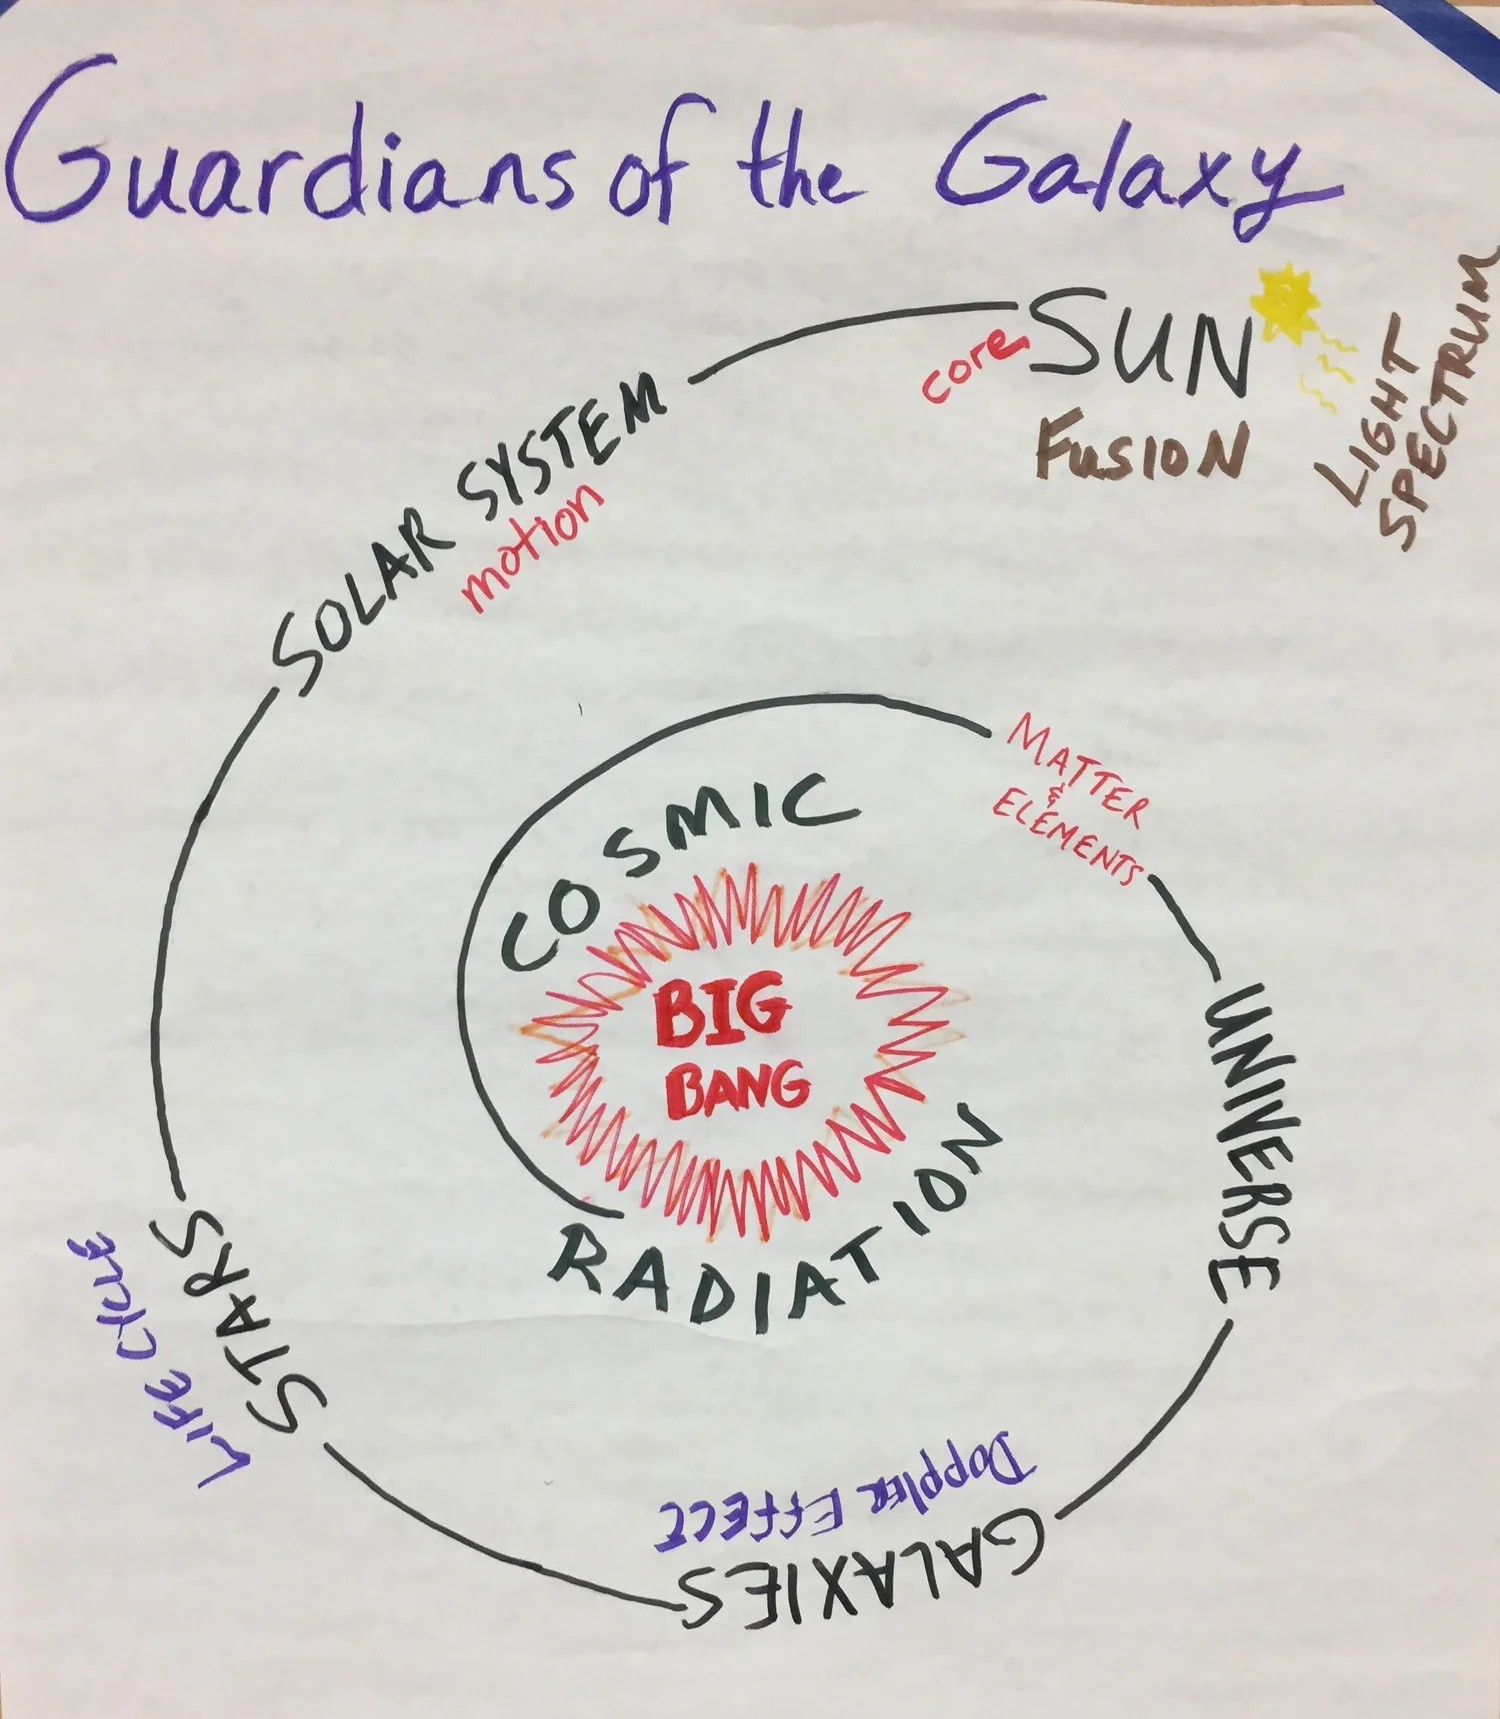 Guardians of the Galaxy
BIG
BANG
COSMIC
RADIATION
MATTER
&
ELEMENTS
UNIVERSE
GALAXIES
DOPPLER EFFECT
STARS
LIFE CYCLE
SOLAR SYSTEM
motion
SUN
core
FUSION
LIGHT
SPECTRUM